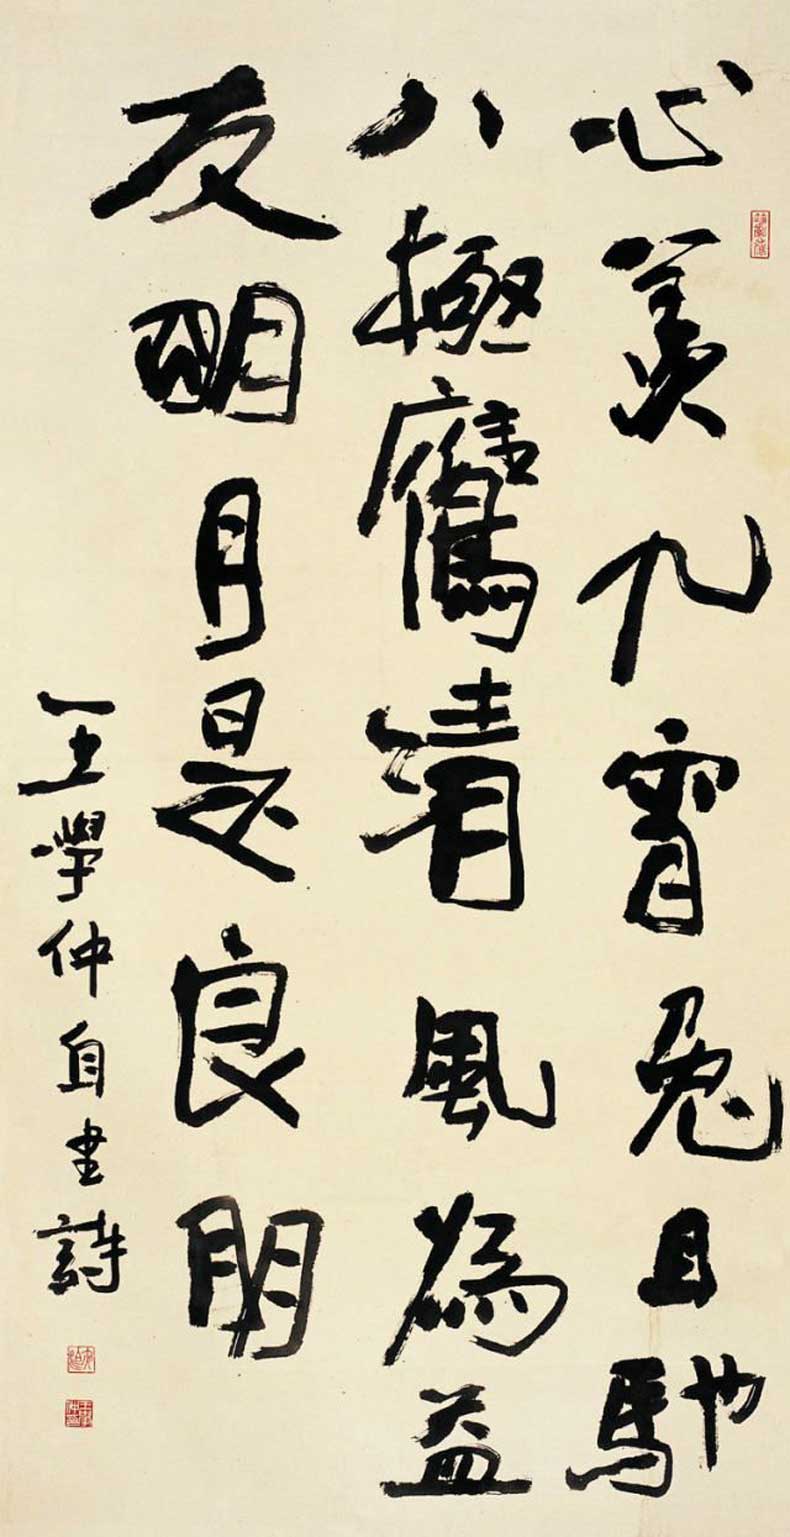 心羨九霄兔目馳
八極鷹清風為益
友明月是良朋
王學仲自書詩